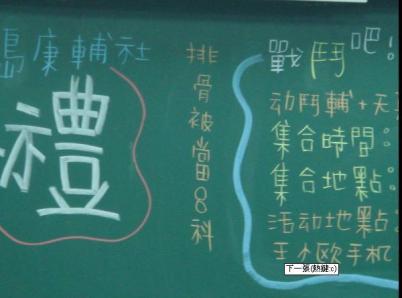 島康輔社
禮
排骨被當8科
戰鬥吧!
动鬥輔+天
集合時間:
集合地點:
活动地點:
王小欧手机
下一張(熱鍵:c)